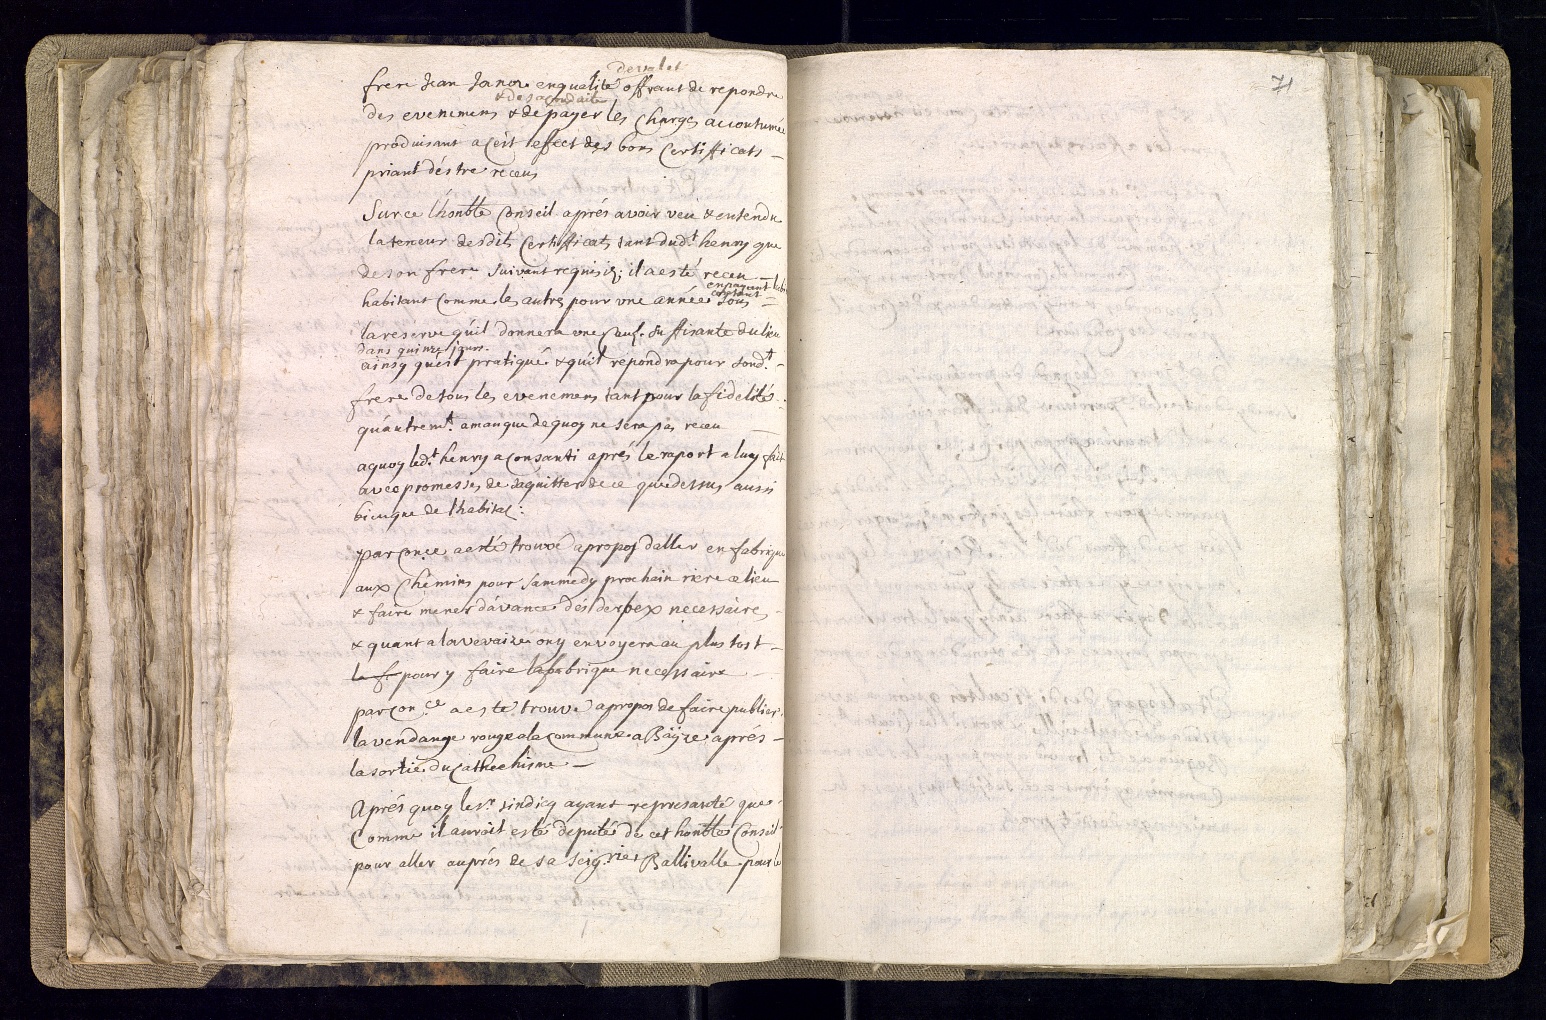 de valet
frere Jean Janox en qualité offrant de repondre
& de sa conduite
des evenemens & de payer les charges accoutumée
produisant a cést effect des bons Certifficats
priant déstre receu
Sur ce lhonble Conseil aprés avoir veu & entendu
la teneur desdits Certifficats tant dudt henry que
de son frere suivant requis; il a esté receu
en payant
contant
habitant comme les autres pour une année sous
la reserve quil donnera une suffisante du lieu
dans quinze jours
ainsy quést pratiqué & quil répondra pour sondt
frere de tous les evenemens tant pour la fidelité
quáutremt. a manque de quoy ne séra pas receu
a quoy ledt henry a consanti aprés le raport a luy fait
avec promesses de saquitter de ce que dessus aussi
bien que de lhabitaõn:
par Conce a esté trouvé apropos daller en fabrique
aux Chemins pour Sammedy prochain riere ce lieu
& faire mener dávance dés derbex necessaires
& quant a la vevaize on y envoyera au plus tost
pour y faire la fabrique necessaire
par conce a esté trouvé apropos de faire publier
la vendange rouge a la commune a Bäÿze aprés
la sortie du Cathechisme
Aprés quoy le sr. sindicq ayant represanté que
Comme il auroit esté deputé de cet honble Conseil
pour aller auprés de sa Seigrie. Ballivalle pour le
71